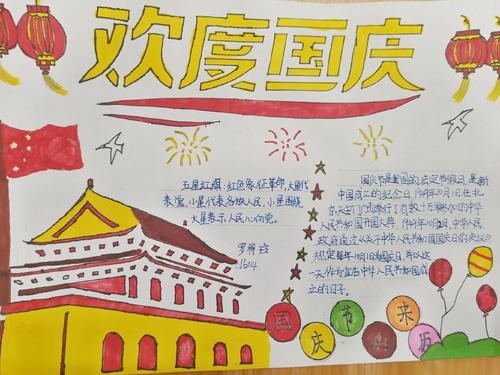 欢度国庆
五星红旗:红色象征革命,大星代
表党,小星代表各族人民,小星围绕
大星表示人民心向党。
国庆节是我国的法定节假日,是新
中国成立的纪念日,1949年10月1日在北
京天安门广场举行了有数十万群众参加的中华
人民共和国开国大典,1949年10月2日,中华人民
政府通过《关于中华人民共和国国庆日的决议》
规定每年10月1日为国庆日,并以这
一天作为宣告中华人民共和国成
立的日子。
国庆节 来历